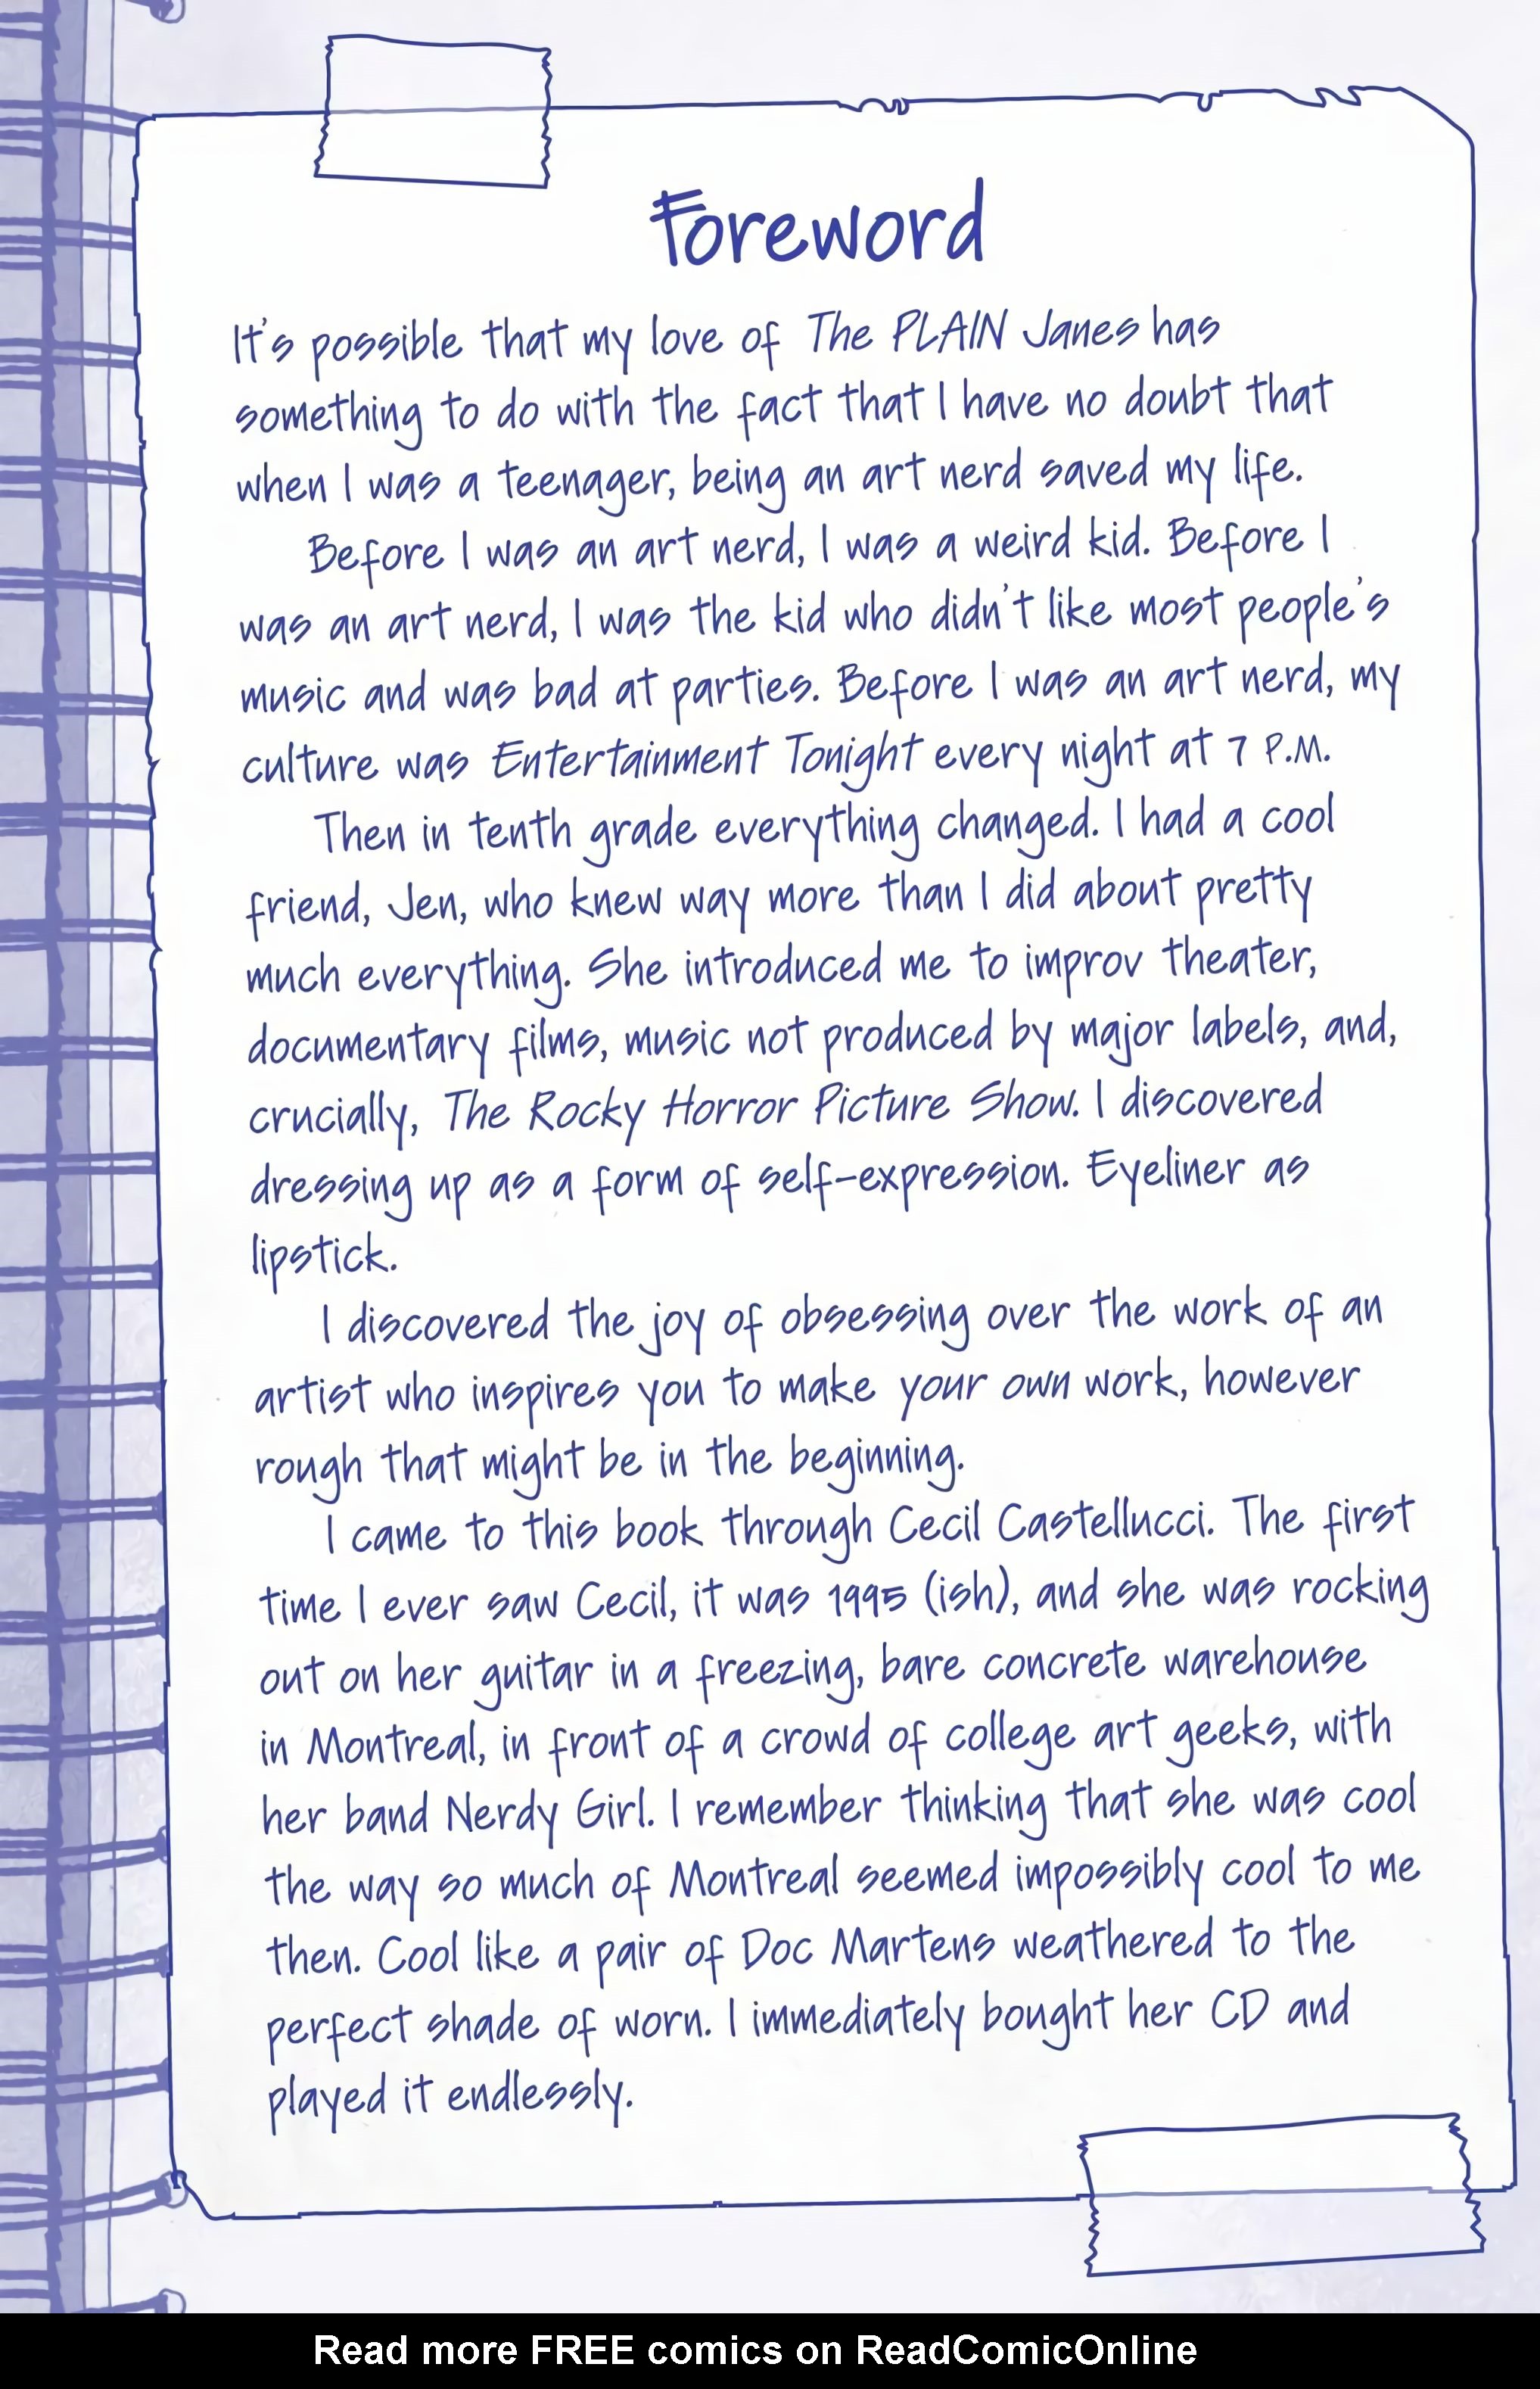 Foreword
It's possible that my love of The PLAIN Janes has
something to do with the fact that I have no doubt that
when I was a teenager, being an art nerd saved my life.
Before I was an art nerd, I was a weird kid. Before I
was an art nerd, I was the kid who didn't like most people's
music and was bad at parties. Before I was an art nerd, my
culture was Entertainment Tonight every night at 7 P.M.
Then in tenth grade everything changed. I had a cool
friend, Jen, who knew way more than I did about pretty
much everything. She introduced me to improv theater,
documentary films, music not produced by major labels, and,
crucially, The Rocky Horror Picture Show. I discovered
dressing up as a form of self-expression. Eyeliner as
lipstick.
I discovered the joy of obsessing over the work of an
artist who inspires you to make your own work, however
rough that might be in the beginning.
I came to this book through Cecil Castellucci. The first
time I ever saw Cecil, it was 1995 (ish), and she was rocking
out on her guitar in a freezing, bare concrete warehouse
in Montreal, in front of a crowd of college art geeks, with
her band Nerdy Girl. I remember thinking that she was cool
the way so much of Montreal seemed impossibly cool to me
then. Cool like a pair of Doc Martens weathered to the
perfect shade of worn. I immediately bought her CD and
played it endlessly.
Read more FREE comics on ReadComicOnline